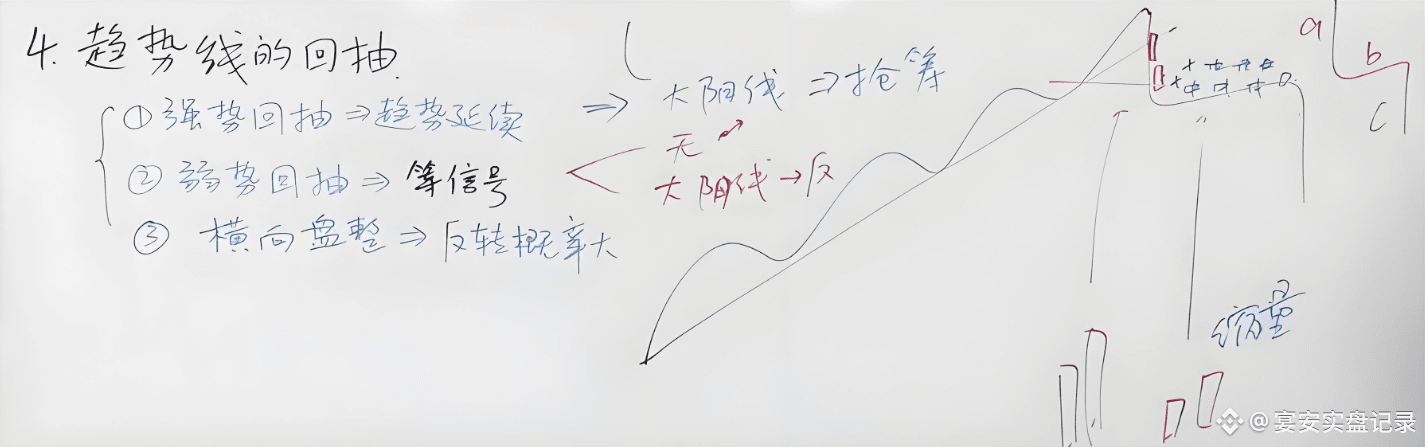 4. 趋势线的回抽.
① 强势回抽⇒趋势延续 ⇒ 大阳线⇒抢筹
② 弱势回抽⇒等信号
无
大阳线→反
③ 横向盘整⇒反转概率大
a
b
c
缩量
@宴安实盘记录